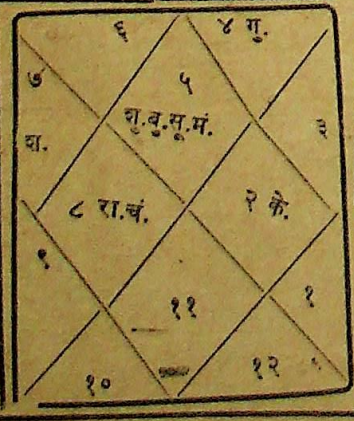 ६ ४ गु.
७ ५
शु.बु.सू.मं. ३
श.
८ रा.चं. २ के.
९
११ १
१० १२